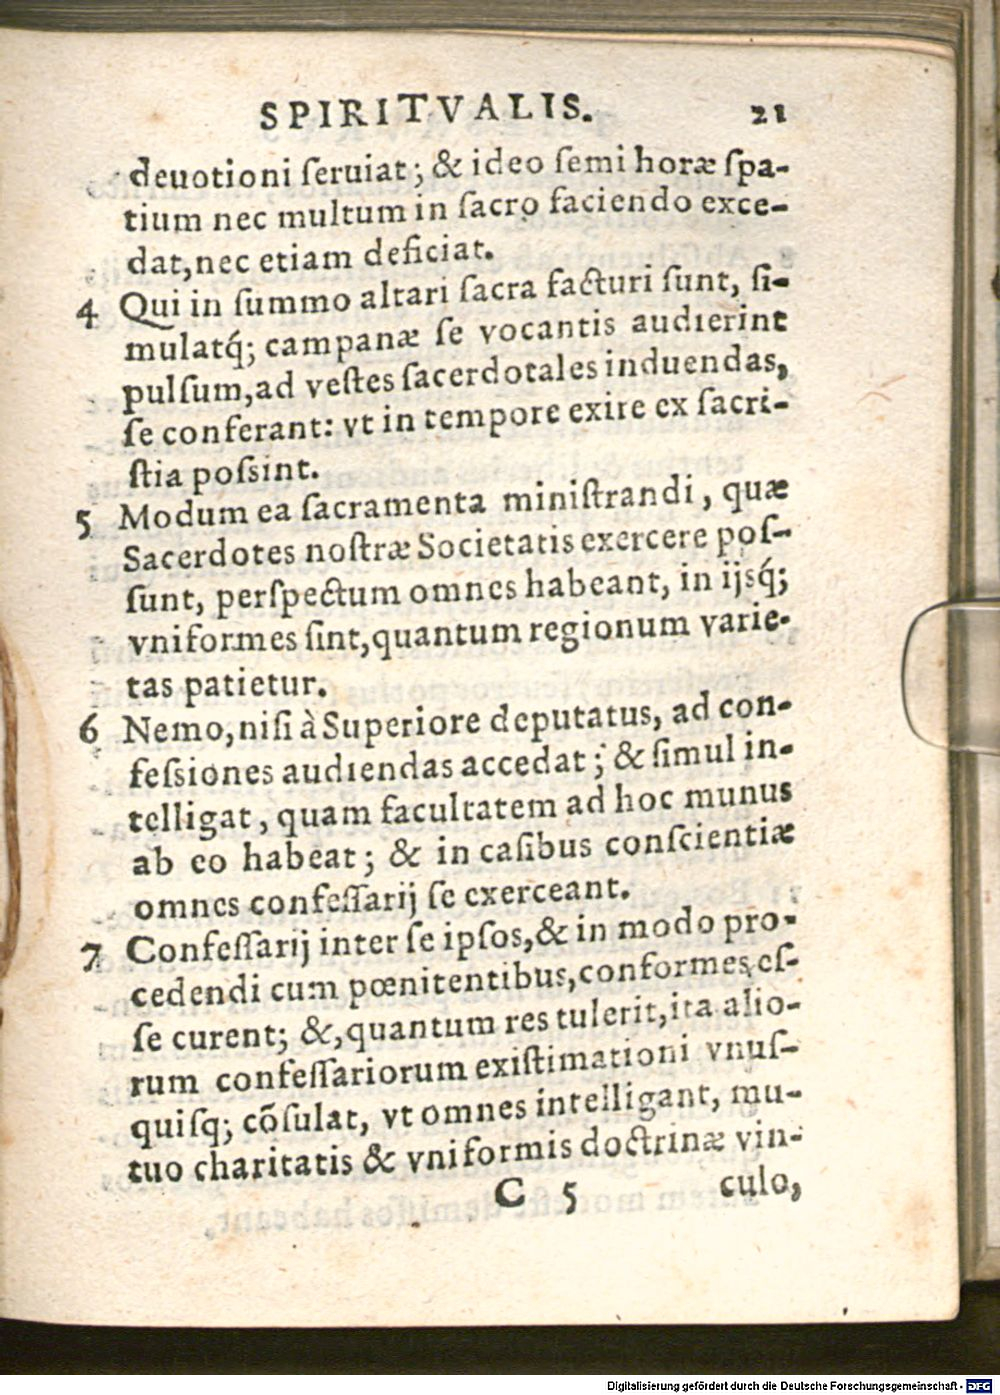 SPIRITVALIS. 21
deuotioni ſeruiat; & ideo ſemi horæ ſpa-
tium nec multum in ſacro faciendo exce-
dat, nec etiam deficiat.
4 Qui in ſummo altari ſacra facturi ſunt, ſi-
mulatq́; campanæ ſe vocantis audierint
pulſum, ad veſtes ſacerdotales induendas,
ſe conferant: vt in tempore exire ex ſacri-
ſtia poſsint.
5 Modum ea ſacramenta miniſtrandi, quæ
Sacerdotes noſtræ Societatis exercere poſ-
ſunt, perſpectum omnes habeant, in ijsq́;
vniformes ſint, quantum regionum varie-
tas patietur.
6 Nemo, niſi à Superiore deputatus, ad con-
feſsiones audiendas accedat; & ſimul in-
telligat, quam facultatem ad hoc munus
ab eo habeat; & in caſibus conſcientiæ
omnes confeſſarij ſe exerceant.
7 Confeſſarij inter ſe ipſos, & in modo pro-
cedendi cum pœnitentibus, conformes eſ-
ſe curent; &, quantum res tulerit, ita alio-
rum confeſſariorum exiſtimationi vnuſ-
quiſq; cõſulat, vt omnes intelligant, mu-
tuo charitatis & vniformis doctrinæ vin-
C 5 culo,
Digitalisierung gefördert durch die Deutsche Forschungsgemeinschaft - DFG